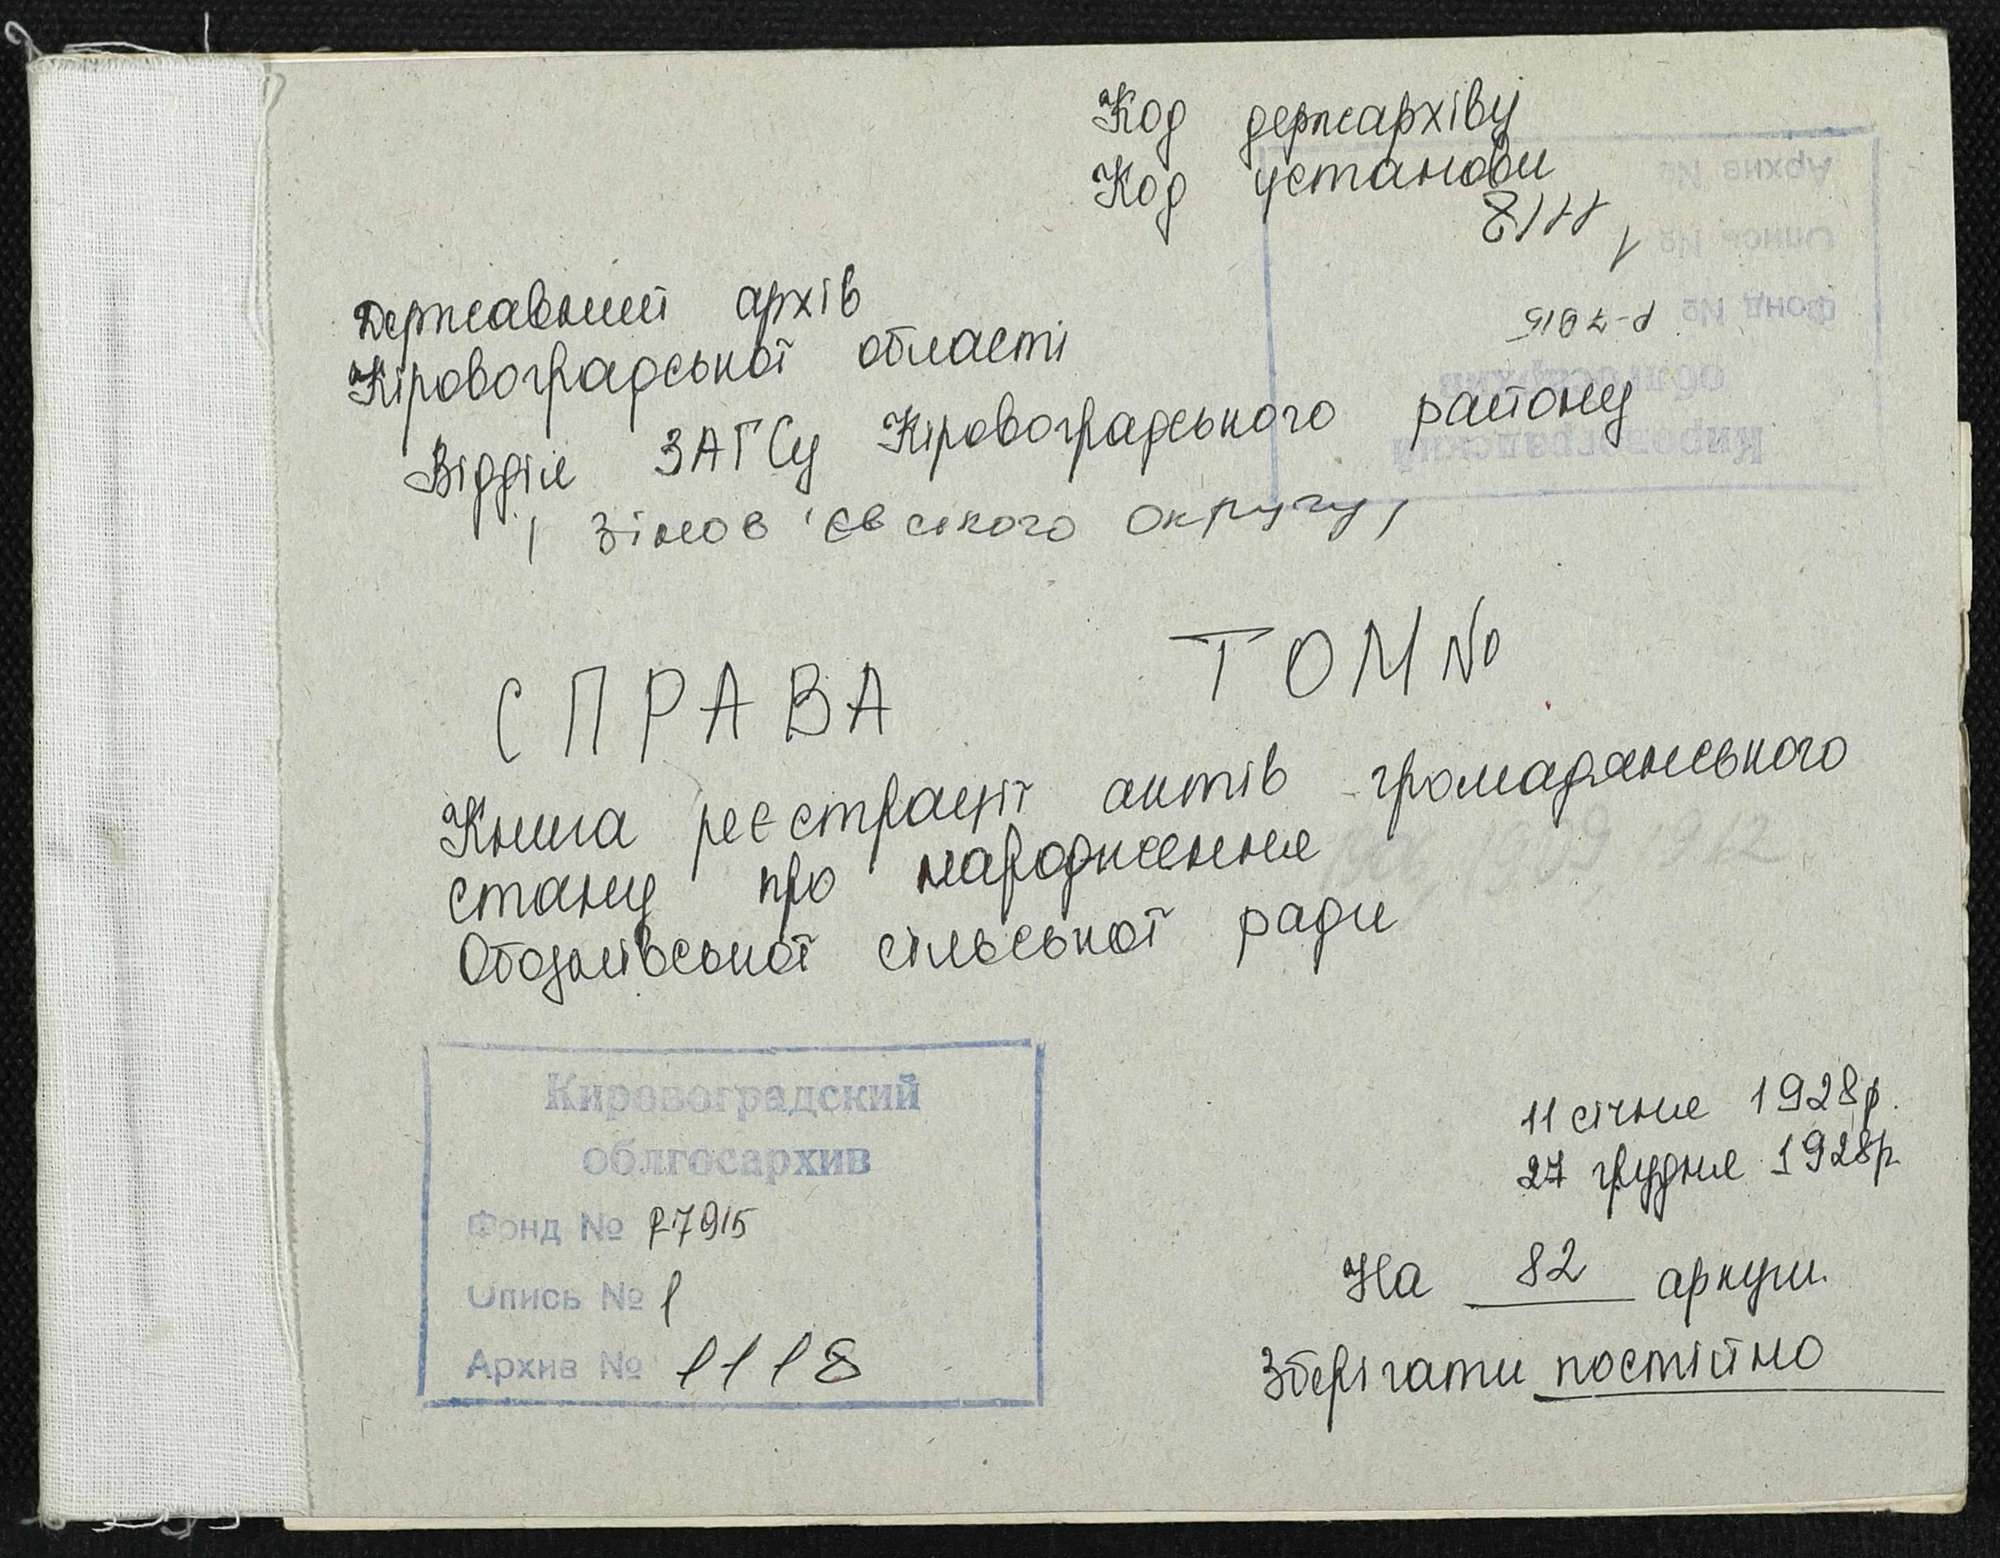 Код держархіву
Код установи
Державний архів
Кіровоградської області
Відділ ЗАГСу Кіровоградського району
/ Зінов'євського округу /
СПРАВА ТОМ №
Книга реєстрації актів громадянського
стану про народження
Обознівської сільської ради
11 січня 1928р.
27 грудня 1928р.
На 82 аркуш.
Зберігати постійно
Кировоградский
облгосархив
Фонд № Р7915
Опись № 1
Архив № 1118
Кировоградский
облгосархив
Фонд № Р-7915
Опись № 1
Архив № 1118